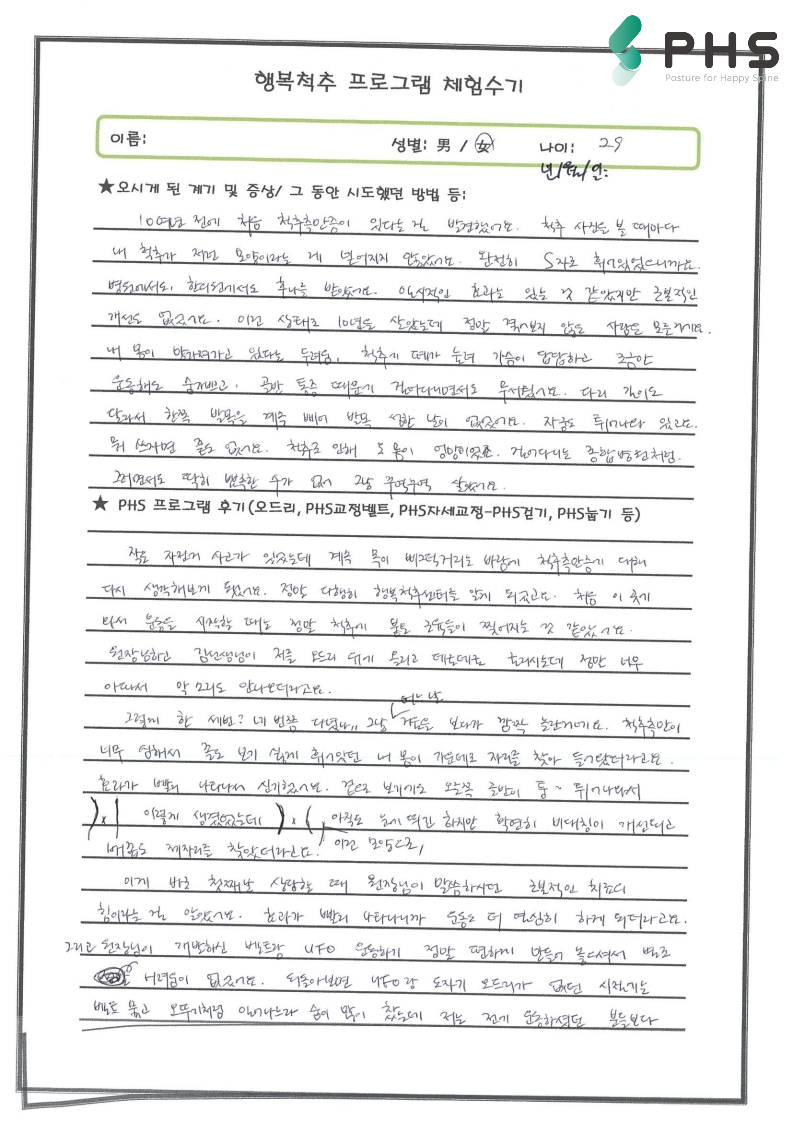 PHS
Posture for Happy Spine
행복척추 프로그램 체험수기
이름:
성별: 男 / 女 나이: 29
년/월/일:
★오시게 된 계기 및 증상/ 그 동안 시도했던 방법 등:
10여년 전에 처음 척추측만증이 있다는 걸 발견했어요. 척추 사진을 볼 때마다
내 척추가 저런 모양이라는 게 믿어지지 않았어요. 완전히 S자로 휘어있었으니까요.
병원에서도, 한의원에서도 추나를 받았어요. 일시적인 효과는 있는 것 같았지만 근본적인
개선은 없었어요. 이런 상태로 10년을 살았는데 정말 겪어보지 않은 사람은 모를거예요.
내 몸이 망가져가고 있다는 두려움, 척추에 폐가 눌려 가슴이 답답하고 조금만
운동해도 숨가쁘고. 골반 통증 때문에 걸어다니면서도 무서웠어요. 다리 길이도
달라서 한쪽 발목을 계속 삐어 발목 성한 날이 없었어요. 자궁도 튀어나와 있고요.
뭐 쓰자면 끝도 없어요. 척추로 인해 온 몸이 엉망이었죠. 걸어다니는 종합병원처럼.
그러면서도 딱히 뾰족한 수가 없어 그냥 꾸역꾸역 살았어요.
★ PHS 프로그램 후기(오드리, PHS교정벨트, PHS자세교정-PHS걷기, PHS눕기 등)
작은 자전거 사고가 있었는데 계속 목이 삐그덕거리는 바람에 척추측만증에 대해
다시 생각해보게 됐어요. 정말 다행히 행복척추센터를 알게 되었고요. 처음 이 곳에
와서 운동을 시작할 때는 정말 척추에 붙은 근육들이 찢어지는 것 같았어요.
원장님하고 김선생님이 저를 오드리 위에 올리고 데굴데굴 굴리시는데 정말 너무
아파서 악 소리도 안나오더라고요.
그렇게 한 세번? 네 번쯤 다녔나, 그냥 어느 날 거울을 보다가 깜짝 놀란거예요. 척추측만이
너무 심해서 꼴도 보기 싫게 휘어있던 내 몸이 가운데로 자리를 찾아 들어왔더라고요.
효과가 빨리 나타나서 신기했어요. 겉으로 보기에도 오른쪽 골반이 툭~ 튀어나와서
이렇게 생겼었는데 아직도 눈에 띄긴 하지만 확연히 비대칭이 개선되고
이런 모양으로,
배꼽도 제자리를 찾았더라고요.
이게 바로 첫째날 상담할 때 원장님이 말씀하시던 근본적인 치료의
힘이라는 걸 알았어요. 효과가 빨리 나타나니까 운동도 더 열심히 하게 되더라고요.
그리고 원장님이 개발하신 벨트랑 UFO 운동하기 정말 편하게 만들어 놓으셔서 별로
어려움이 없었어요. 되돌아보면 UFO랑 도자기 오드리가 없던 시절에는
벨트 묶고 오뚜기처럼 일어나느라 숨이 많이 찼는데 저는 전에 운동하셨던 분들보다